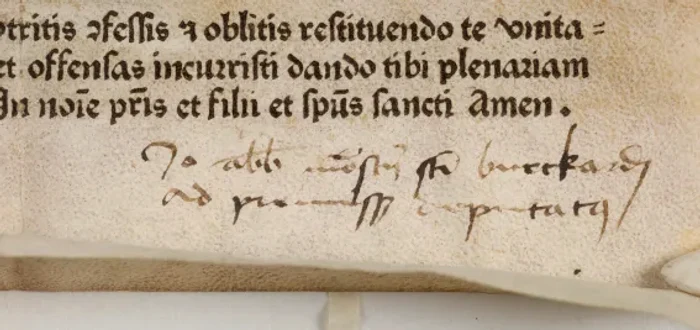 otritis ꝯfessis ⁊ oblitis restituendo te vnita⸗
et offensas incurristi dando tibi plenariam
In noīe pr̄is et filii et sp̄us sancti Amen .
Jo abb mōstij sti burckardi
ad premiss deputatꝯ